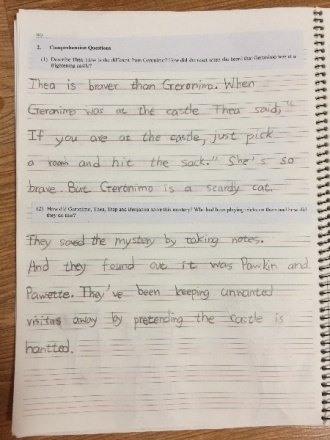 2. Comprehension Questions
(1) Describe Thea. How is she different from Geronimo? How did she react when she heard that Geronimo was at a
frightening castle?
Thea is braver than Geronimo. When
Geronimo was at the castle Thea said, "
If you are at the castle, just pick
a room and hit the sack." She's so
brave. But Geronimo is a scardy cat.
(2) How did Geronimo, Thea, Trap and Benjamin solve this mystery? Who had been playing tricks on them and how did
they do that?
They soved the mystery by taking notes.
And they found out it was Pawkin and
Pawette. They've been keeping unwanted
visitas away by pretending the castle is
hantted.